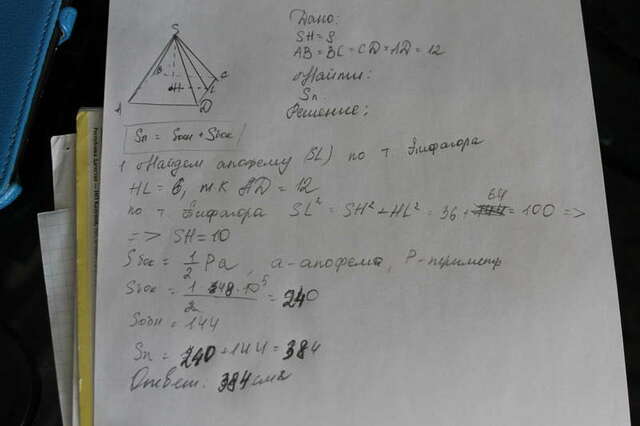 S
B
C
H
L
A
D
Дано:
SH = 8
AB = BC = CD = AD = 12
Найти:
Sп.
Решение:
Sп = Sосн + Sбок
1 Найдем апофему (SL) по т. Пифагора
HL = 6, т к AD = 12
по т Пифагора SL² = SH² + HL² = 36 + 64 = 100 =>
=> SH = 10
Sбок = 1/2 Pa, a - апофема, P - периметр
Sбок = 1 · 48 · 10 5 / 2 = 240
Sосн = 144
Sп = 240 + 144 = 384
Ответ. 384 см²